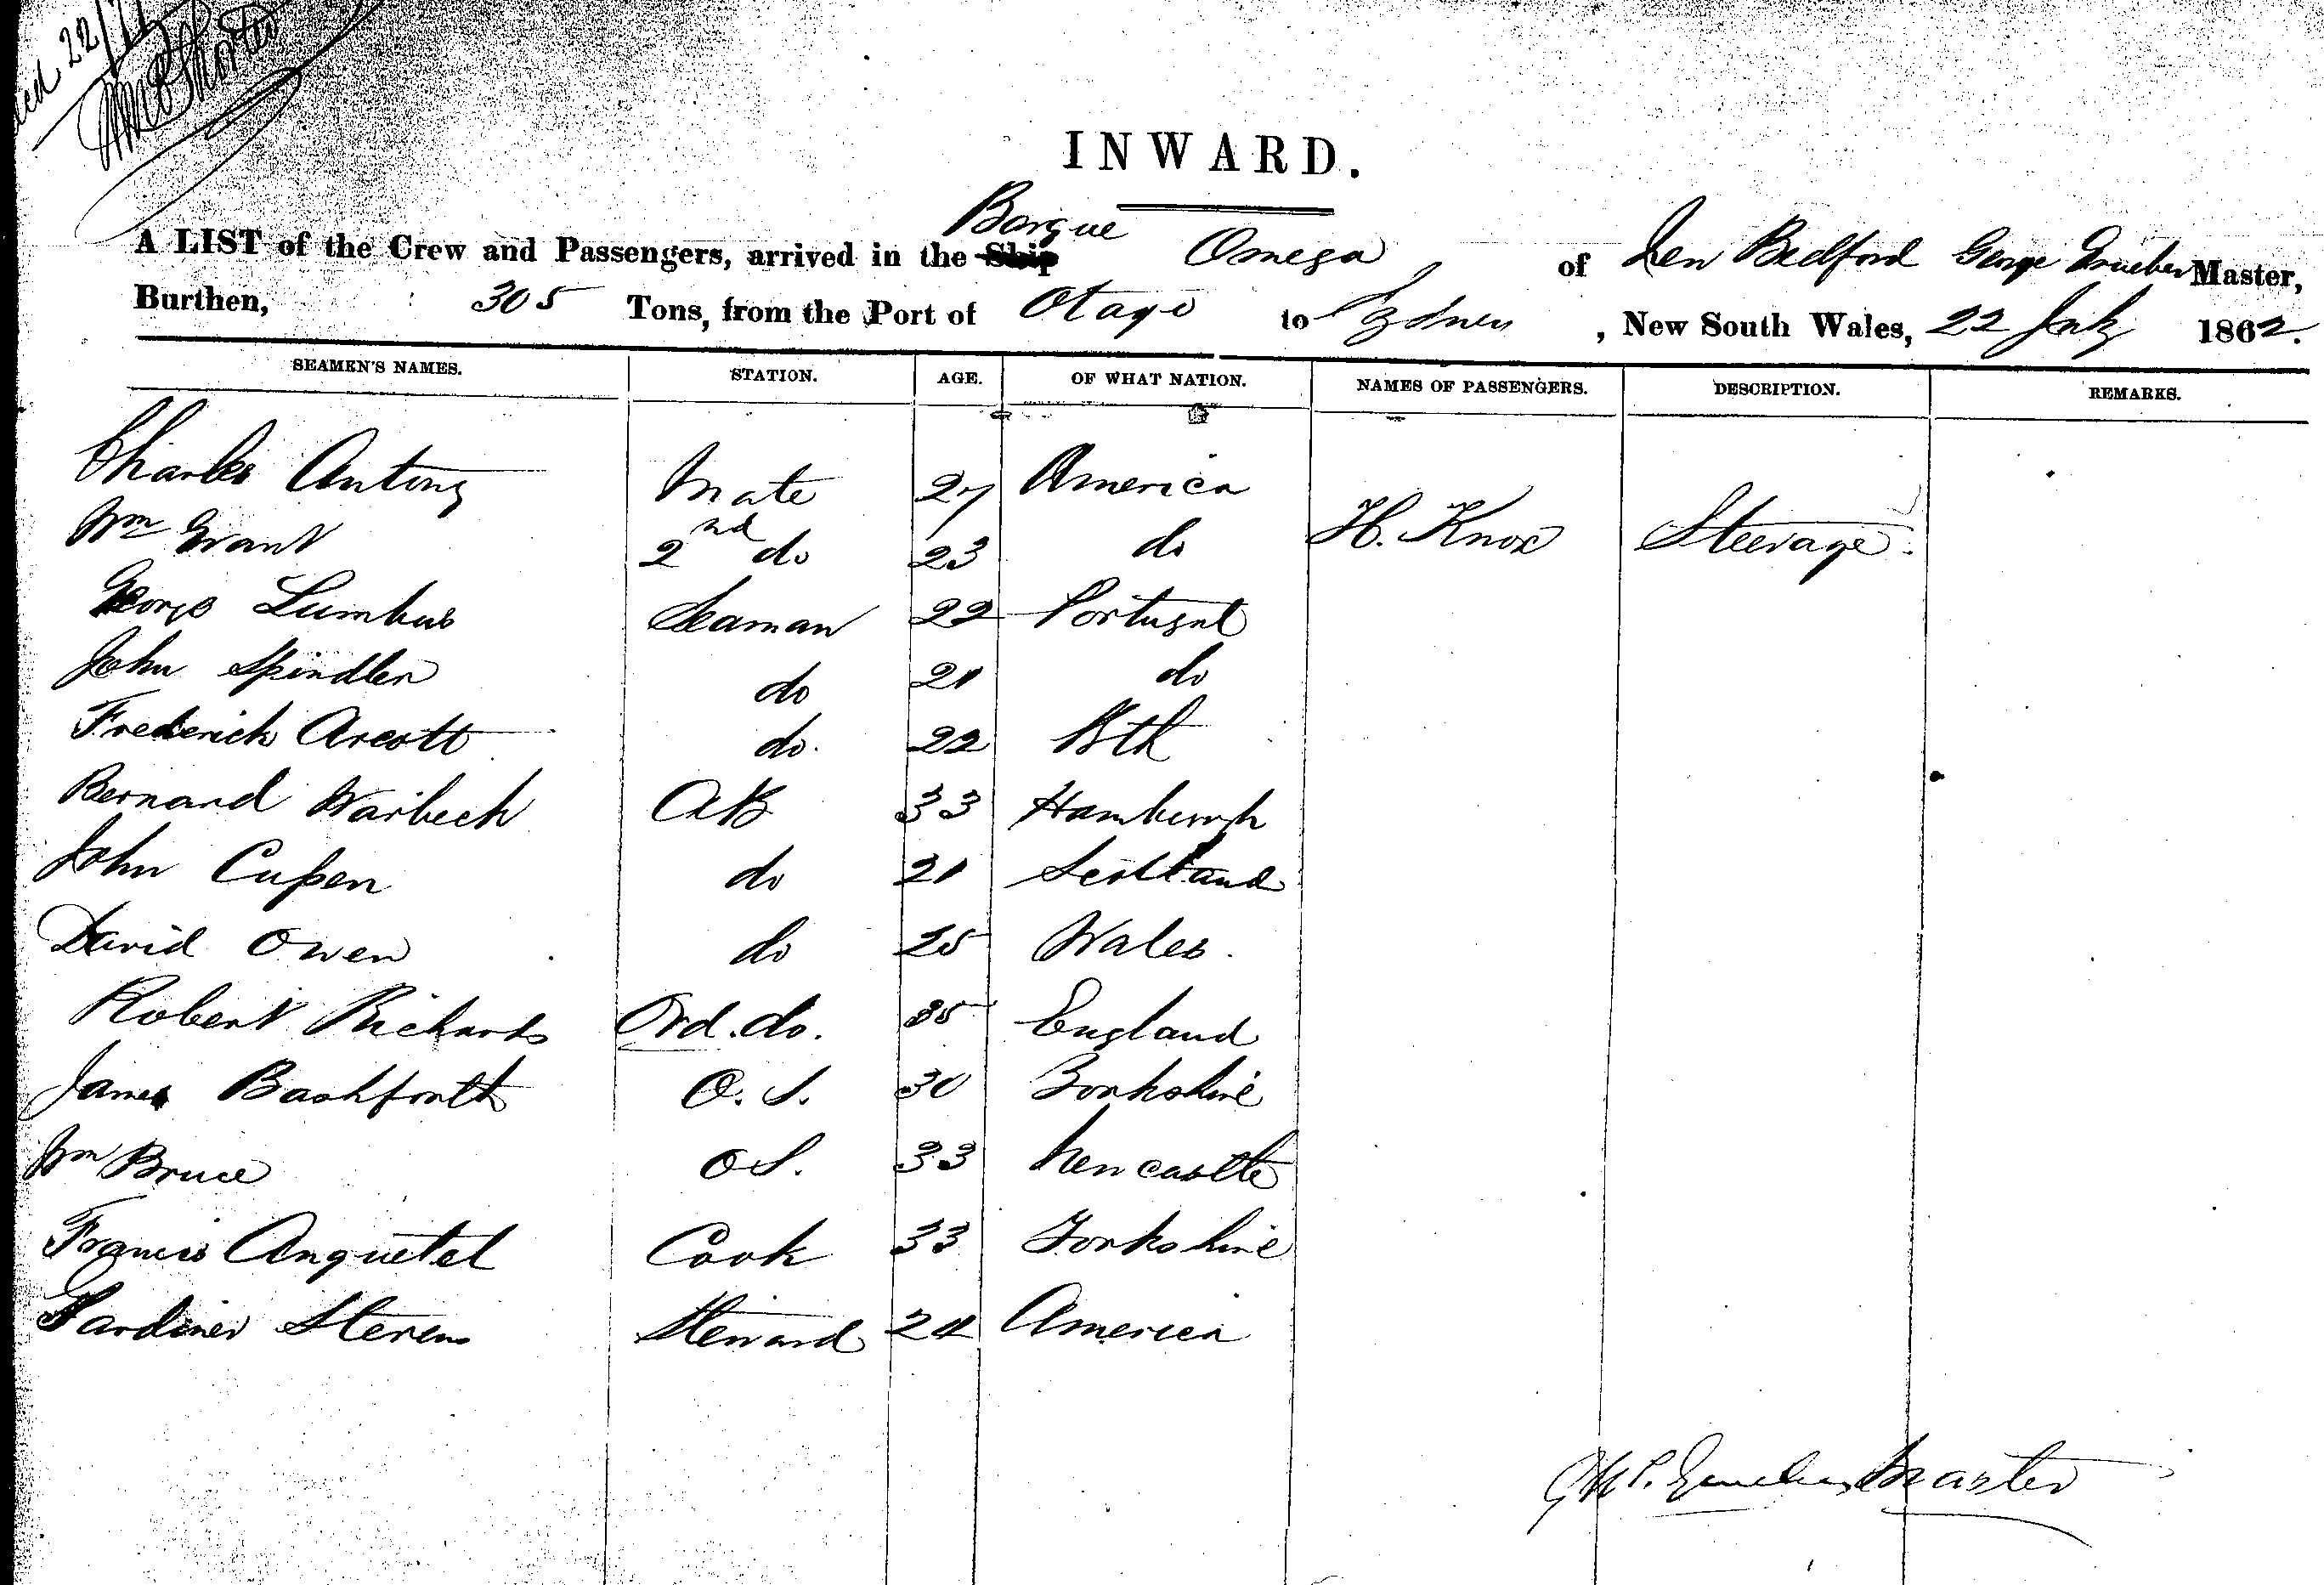 22/7
INWARD.
Barque
A LIST of the Crew and Passengers, arrived in the Ship Omega of New Bedford George Master,
Burthen, 305 Tons, from the Port of Otago to Sydney, New South Wales, 22 July 1862.
SEAMEN'S NAMES. STATION. AGE. OF WHAT NATION. NAMES OF PASSENGERS. DESCRIPTION. REMARKS.
Charles Antony Mate 27 America
Wm Grant 2nd do 23 do H. Knox Steerage.
George Lumbus Seaman 22 Portugal
John Spindler do 21 do
Frederick Arcott do. 22
Bernard Warbeck AB 33 Hamburgh
John do 21 Scotland
David Owen do 25 Wales.
Robert Richards Ord. do. 35 England
James Bashforth O.S. 30 Yorkshire
Wm Bruce OS. 33 Newcastle
Francis Anquetel Cook 33 Yorkshire
Gardiner Stevens Steward 24 America
Master